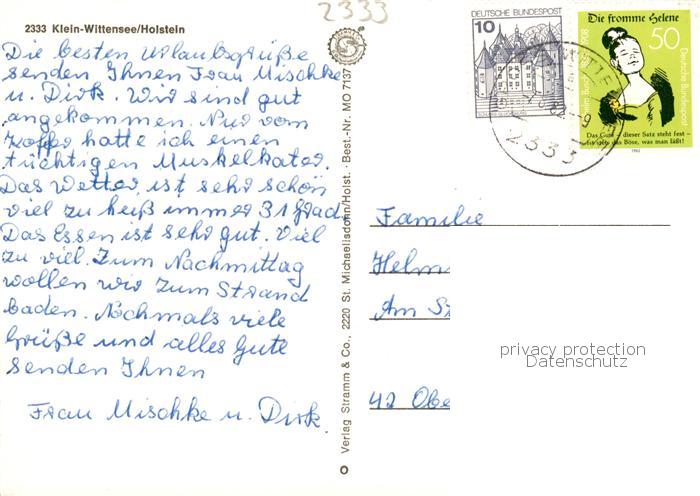 2333 Klein-Wittensee/Holstein
2333
Die besten Urlaubsgrüße
senden Ihnen Frau Mischke
u. Dirk. Wir sind gut
angekommen. Nur vom
Koffer hatte ich einen
tüchtigen Muskelkater.
Das Wetter ist sehr schön
viel zu heiß immer 31 Grad
Das Essen ist sehr gut. Viel
zu viel. Zum Nachmittag
wollen wir zum Strand
baden. Nochmals viele
Grüße und alles Gute
senden Ihnen
Frau Mischke u. Dirk
Verlag Stramm & Co., 2220 St. Michaelisdonn/Holst. · Best.-Nr. MO 7137
DEUTSCHE BUNDESPOST
10
SCHLOSS GLÜCKSBURG
Die fromme Helene
50
Deutsche Bundespost
Das Gute – dieser Satz steht fest –
ist stets das Böse, was man läßt!
1982
2333
Familie
Helm
Am St
42 Obe
privacy protection
Datenschutz